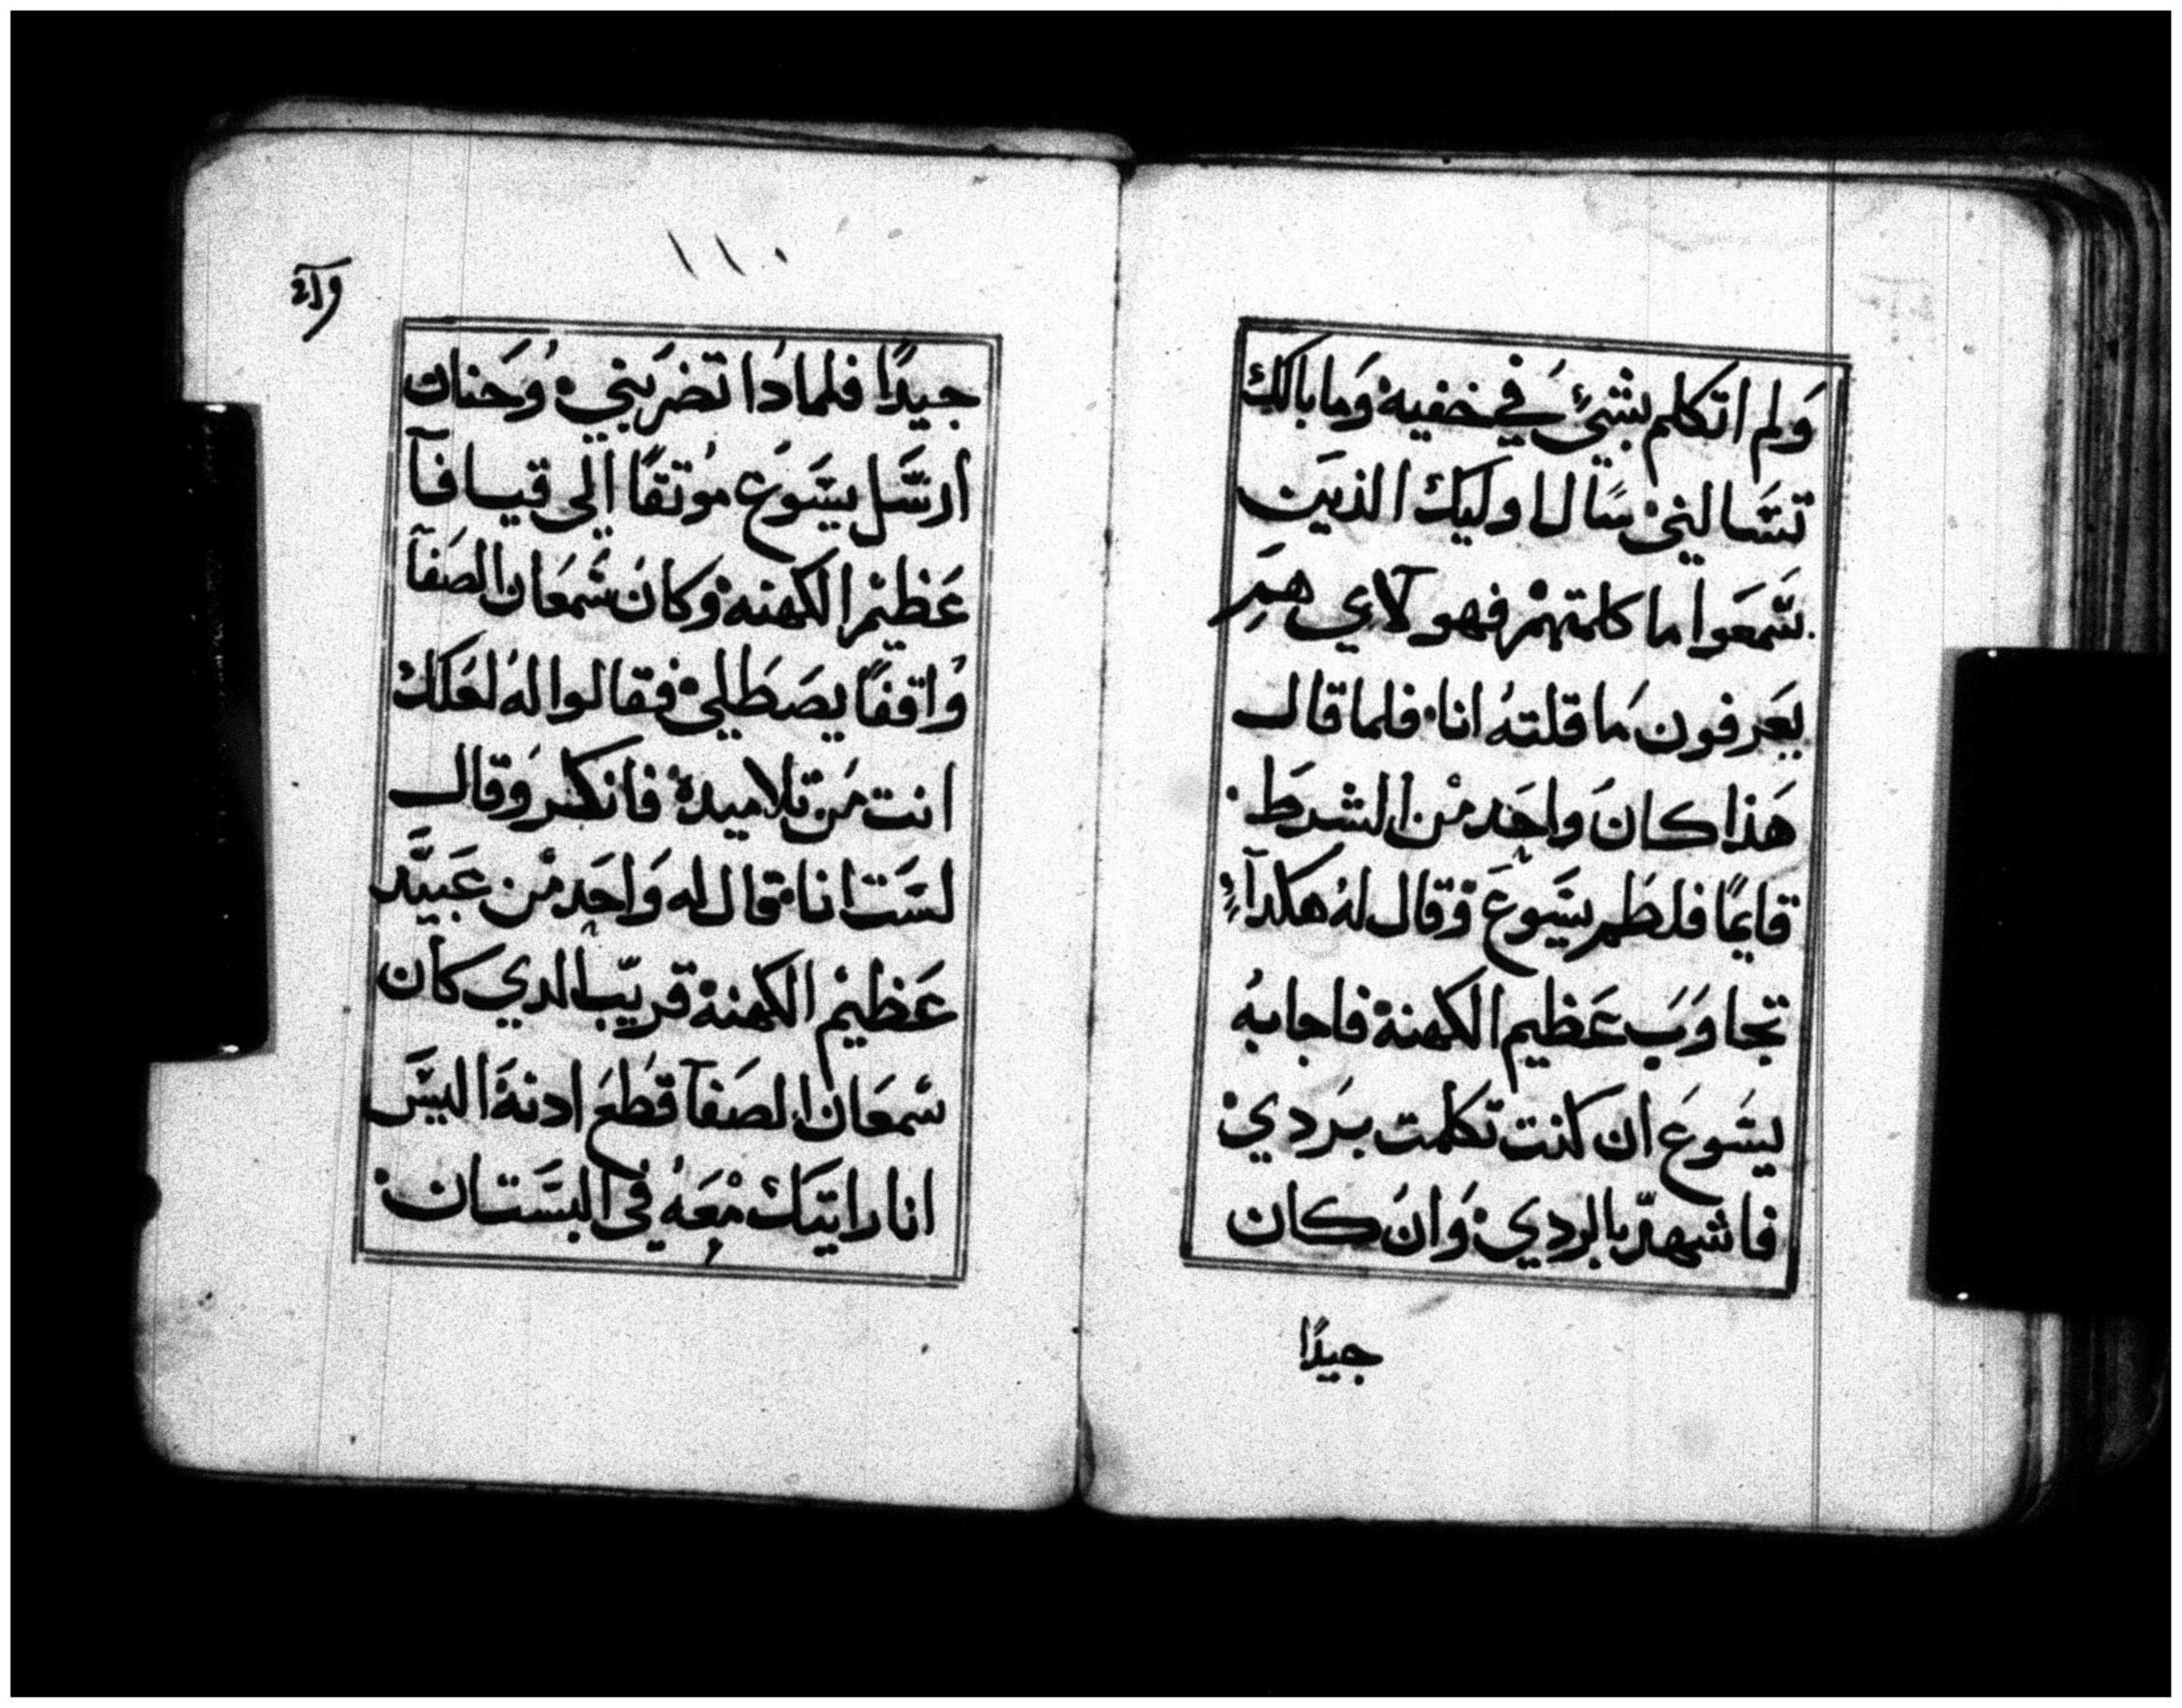 وَلم اتكلم بشيءٍ في خفيه وَما بالك
تسَالني سَال اوليك الذين
سَمعَوا ما كلمتهمْ فهو لاي هم
يعَرفون مَا قلتهُ انا فلما قال
هَذا كانَ واحَد منْ الشرط
قايمًا فلطم يسَوعَ وَقال لهُ هكدآ
تجاوَبَ عَظيم الكهنة فاجابهُ
يسَوعَ ان كنت تكلمت برَدي
فاشهد بالردي وَانَ كان
جيدًا
١١٠
جيدًا فلمادُا تضرَبني وُحَنان
ارسَل يسَوُع موُتقًا الٕى قيافآ
عَظيمْ الكهنه وَكانَ سَمعَان الصَفآ
وُاقفًا يصَطلي فقالوا لهُ لعَلك
انت مَن تلاميدهُ فانكر وَقال
لسَت انا قال له وَاحَد منْ عَبيد
عَظيمْ الكهنة قريبَ الدي كان
سمعَان الصَفآ قطعَ ادنهَ اليسَ
انا رايتَك معَهُ في البسَتان